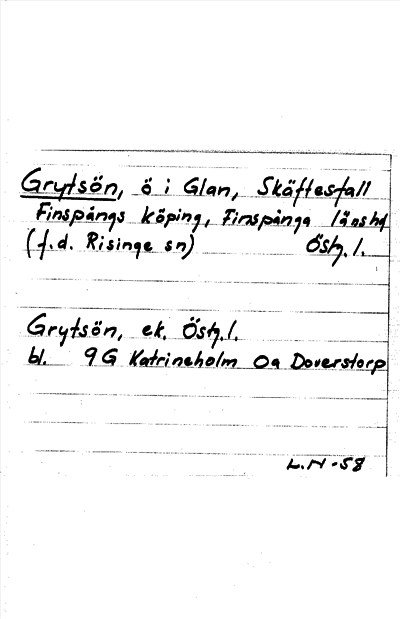 Grytsön, ö i Glan, Skäftesfall
Finspångs köping, Finspånga länshd
(f.d. Risinge sn) Östg.l.
Grytsön, ek. Östg.l.
bl. 9G Katrineholm 0a Doverstorp
L.N -58